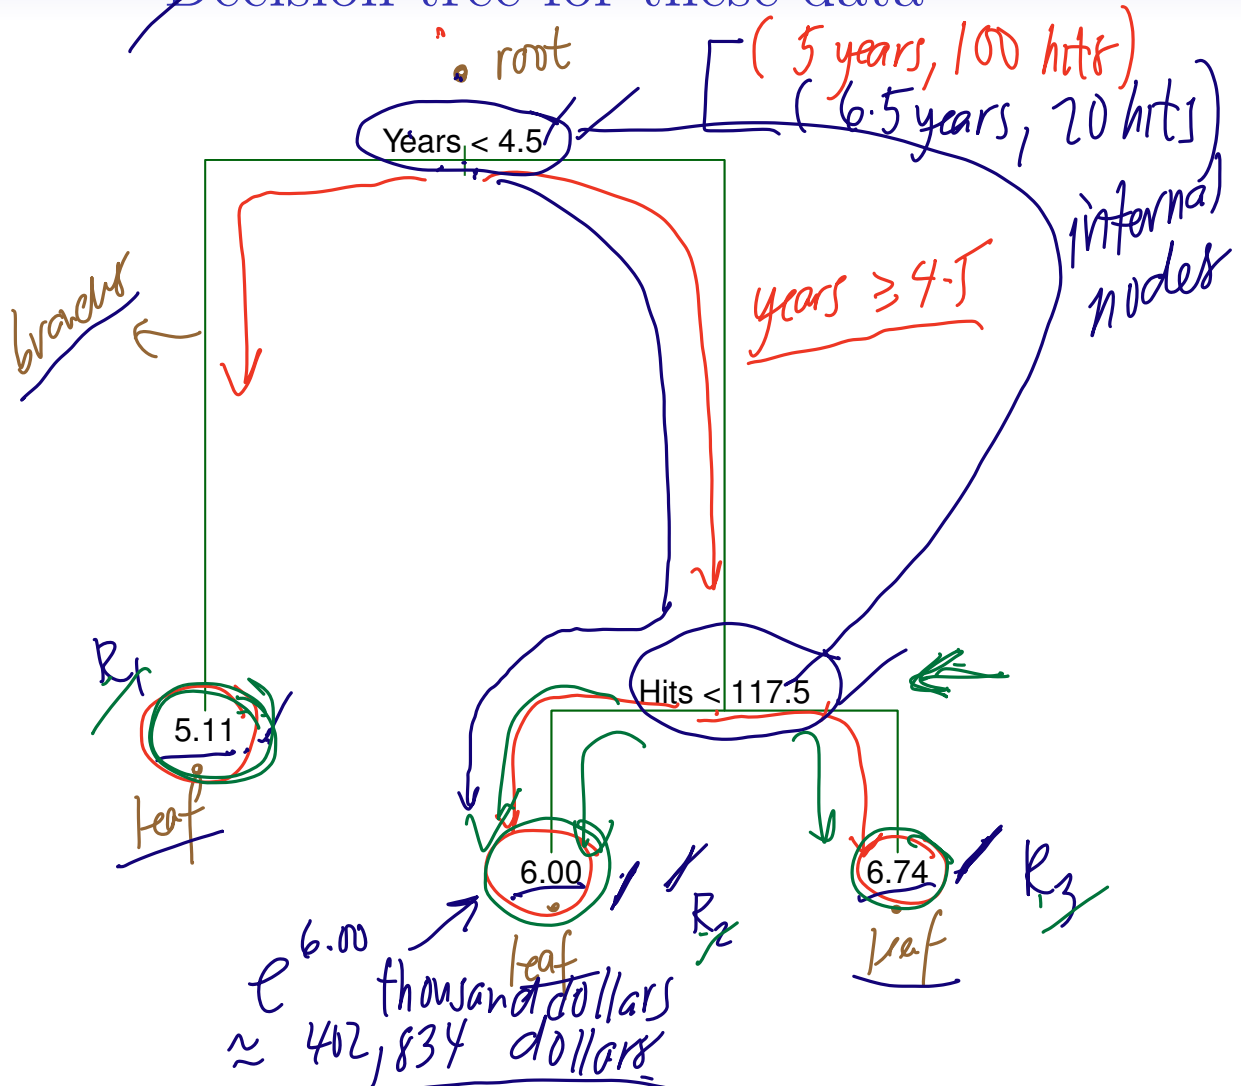 Decision tree for these data
root
( 5 years, 100 hits)
( 6.5 years, 20 hits)
Years < 4.5
internal
nodes
years ≥ 4.5
branches
R1
Hits < 117.5
5.11
leaf
6.00
6.74
R2
R3
leaf
leaf
e^6.00 thousand dollars
≈ 402,834 dollars